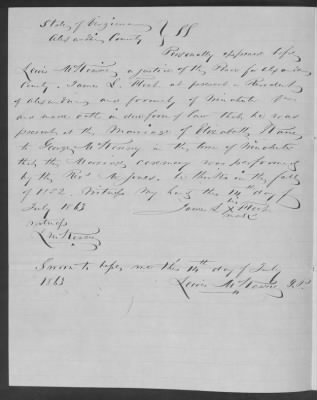 State of Virginia
Alexandria County } SS
Personally appeared before
Lewis McKenzie a Justice of the Peace for Alexandria
County, James L. at present a Resident
of Alexandria and formerly of
and made oath in due form of law that he was
present at the Marriage of Elizabeth
to George McKenney in the town of
that the Marriage ceremony was performed
by the Rev. Mr Jones, he thinks in the fall
of 1822. Witness my hand this 14th day of
July 1863
his
James L X
mark
Witness
L McKenzie
Sworn to before me this 14th day of July
1863
Lewis McKenzie J.P.